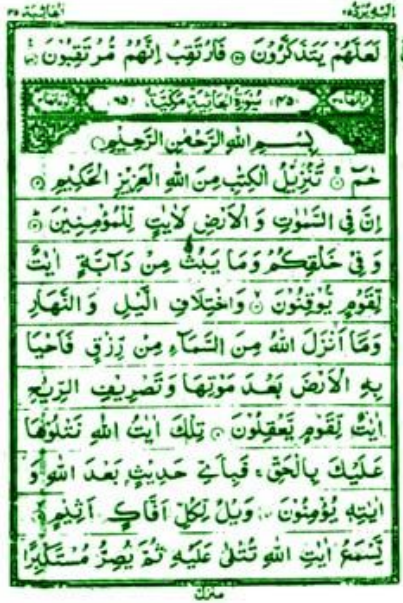 اليه يرد ٢٥
الجاثية ٤٥
لَعَلَّهُمْ يَتَذَكَّرُوْنَ ۝ فَارْتَقِبْ اِنَّهُمْ مُّرْتَقِبُوْنَ ۝
(٤٥) سُوْرَةُ الْجَاثِيَةِ مَكِّيَّةٌ (٦٥)
بِسْمِ اللهِ الرَّحْمٰنِ الرَّحِيْمِ
حٰمٓ ۝ تَنْزِيْلُ الْكِتٰبِ مِنَ اللهِ الْعَزِيْزِ الْحَكِيْمِ ۝
اِنَّ فِي السَّمٰوٰتِ وَ الْاَرْضِ لَاٰيٰتٍ لِّلْمُؤْمِنِيْنَ ۝
وَ فِيْ خَلْقِكُمْ وَمَا يَبُثُّ مِنْ دَآبَّةٍ اٰيٰتٌ
لِّقَوْمٍ يُّوْقِنُوْنَ ۝ وَاخْتِلَافِ الَّيْلِ وَ النَّهَارِ
وَمَآ اَنْزَلَ اللهُ مِنَ السَّمَآءِ مِنْ رِّزْقٍ فَاَحْيَا
بِهِ الْاَرْضَ بَعْدَ مَوْتِهَا وَ تَصْرِيْفِ الرِّيٰحِ
اٰيٰتٌ لِّقَوْمٍ يَّعْقِلُوْنَ ۝ تِلْكَ اٰيٰتُ اللهِ نَتْلُوْهَا
عَلَيْكَ بِالْحَقِّ ۚ فَبِاَيِّ حَدِيْثٍۭ بَعْدَ اللهِ وَ
اٰيٰتِهٖ يُؤْمِنُوْنَ ۝ وَيْلٌ لِّكُلِّ اَفَّاكٍ اَثِيْمٍ ۝
يَّسْمَعُ اٰيٰتِ اللهِ تُتْلٰى عَلَيْهِ ثُمَّ يُصِرُّ مُسْتَكْبِرًا
منزل